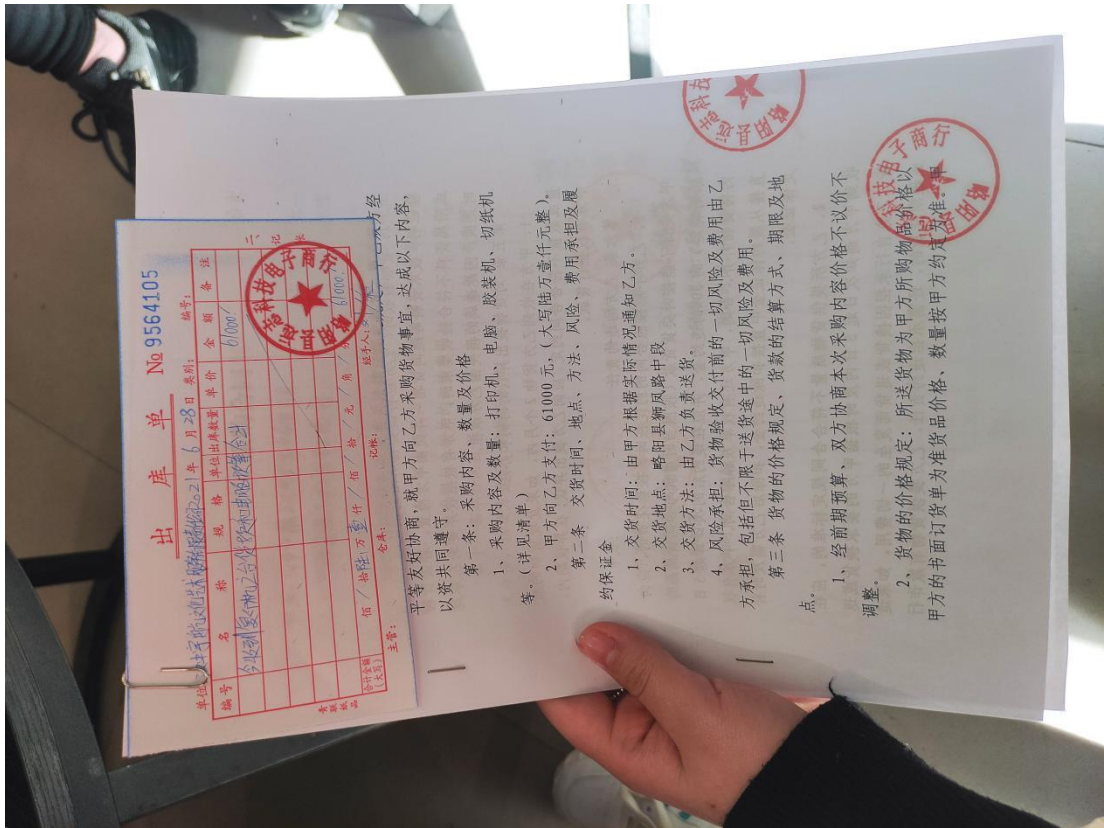 出库单
No 9564105
单位
2021年6月28日
类别:
编号:
编号
名称
规格
单位
出库数量
单价
金额
备注
61000
二、记账
合计金额
(大写)
佰/拾陆万壹仟/佰/拾/元/角/分
61000
主管:
仓库:
记帐:
经手人:
青联纸品
平等友好协商,就甲方向乙方采购货物事宜,达成以下内容,
以资共同遵守。
第一条:采购内容、数量及价格
1、采购内容及数量:打印机、电脑、胶装机、切纸机
等。(详见清单)
2、甲方向乙方支付:61000元,(大写陆万壹仟元整)。
第二条 交货时间、地点、方法、风险、费用承担及履
约保证金
1、交货时间:由甲方根据实际情况通知乙方。
2、交货地点:略阳县狮凤路中段
3、交货方法:由乙方负责送货。
4、风险承担:货物验收交付前的一切风险及费用由乙
方承担,包括但不限于送货途中的一切风险及费用。
第三条 货物的价格规定、货款的结算方式、期限及地
点。
1、经前期预算、双方协商本次采购内容价格不议价不
调整。
2、货物的价格规定:所送货物为甲方所购物品价格以
甲方的书面订货单为准货品价格、数量按甲方约定为准。甲
略阳县远志科技电子商行
略阳县远志科技
科技电子商行
略阳县